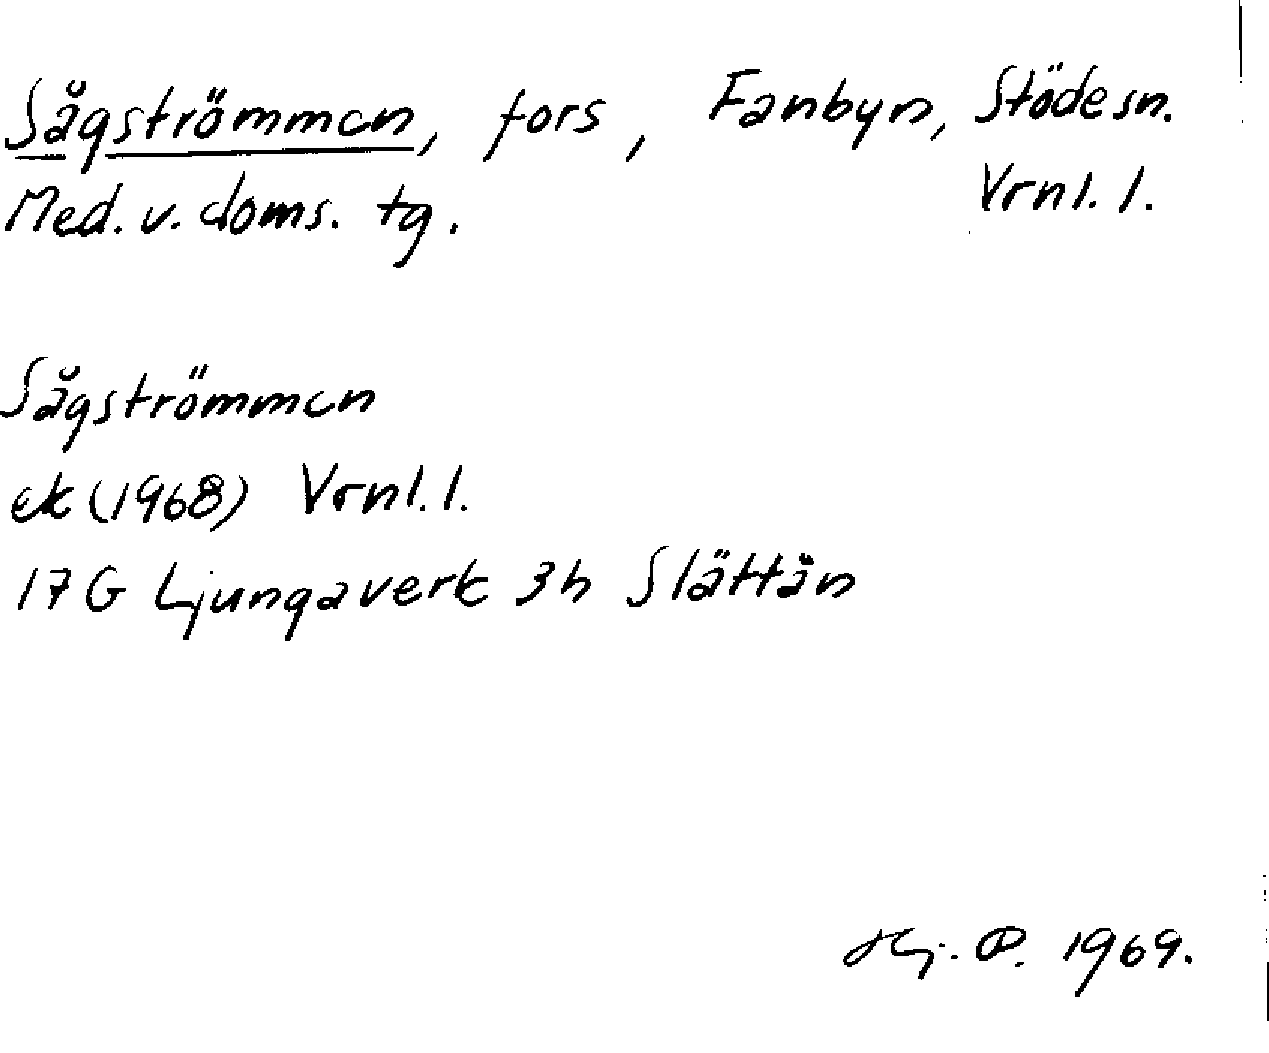 Sågströmmen, fors, Fanbyn, Stöde sn.
Med. v. doms. tg. Vrnl. l.
Sågströmmen
ek (1968) Vrnl. l.
17 G Ljungaverk 3h Slättån
Hj. P. 1969.